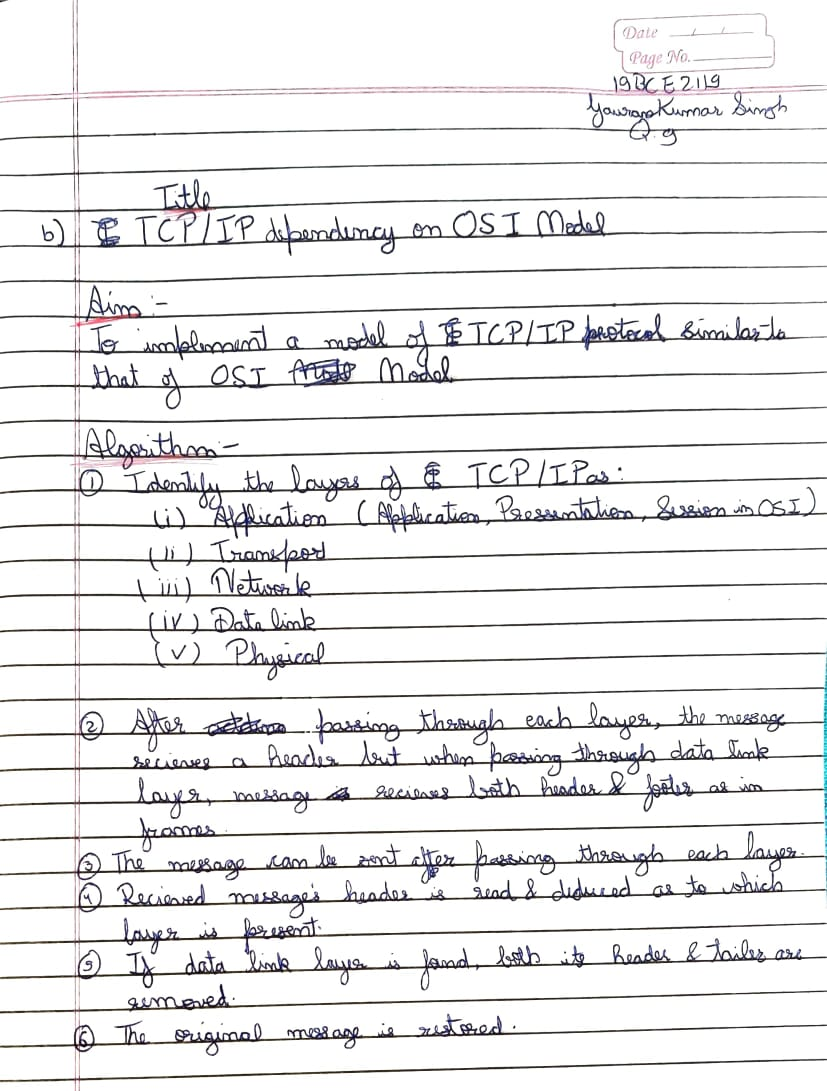 Date
Page No.
19BCE2119
Gaurang Kumar Singh
Q.9
Title
b) TCP/IP dependency on OSI Model
Aim :-
To implement a model of TCP/IP protocol similar to
that of OSI Model
Algorithm :-
① Identify the layers of TCP/IP as :
(i) Application (Application, Pressentation, Session in OSI)
(ii) Transport
(iii) Network
(iv) Data link
(v) Physical
② After passing through each layer, the message
recieves a header but when passing through data link
layer, message recieves both header & footer as in
frames.
③ The message can be sent after passing through each layer.
④ Recieved message's header is read & deduced as to which
layer is present.
⑤ If data link layer is fond, both its header & tailer are
removed.
⑥ The original message is restored.